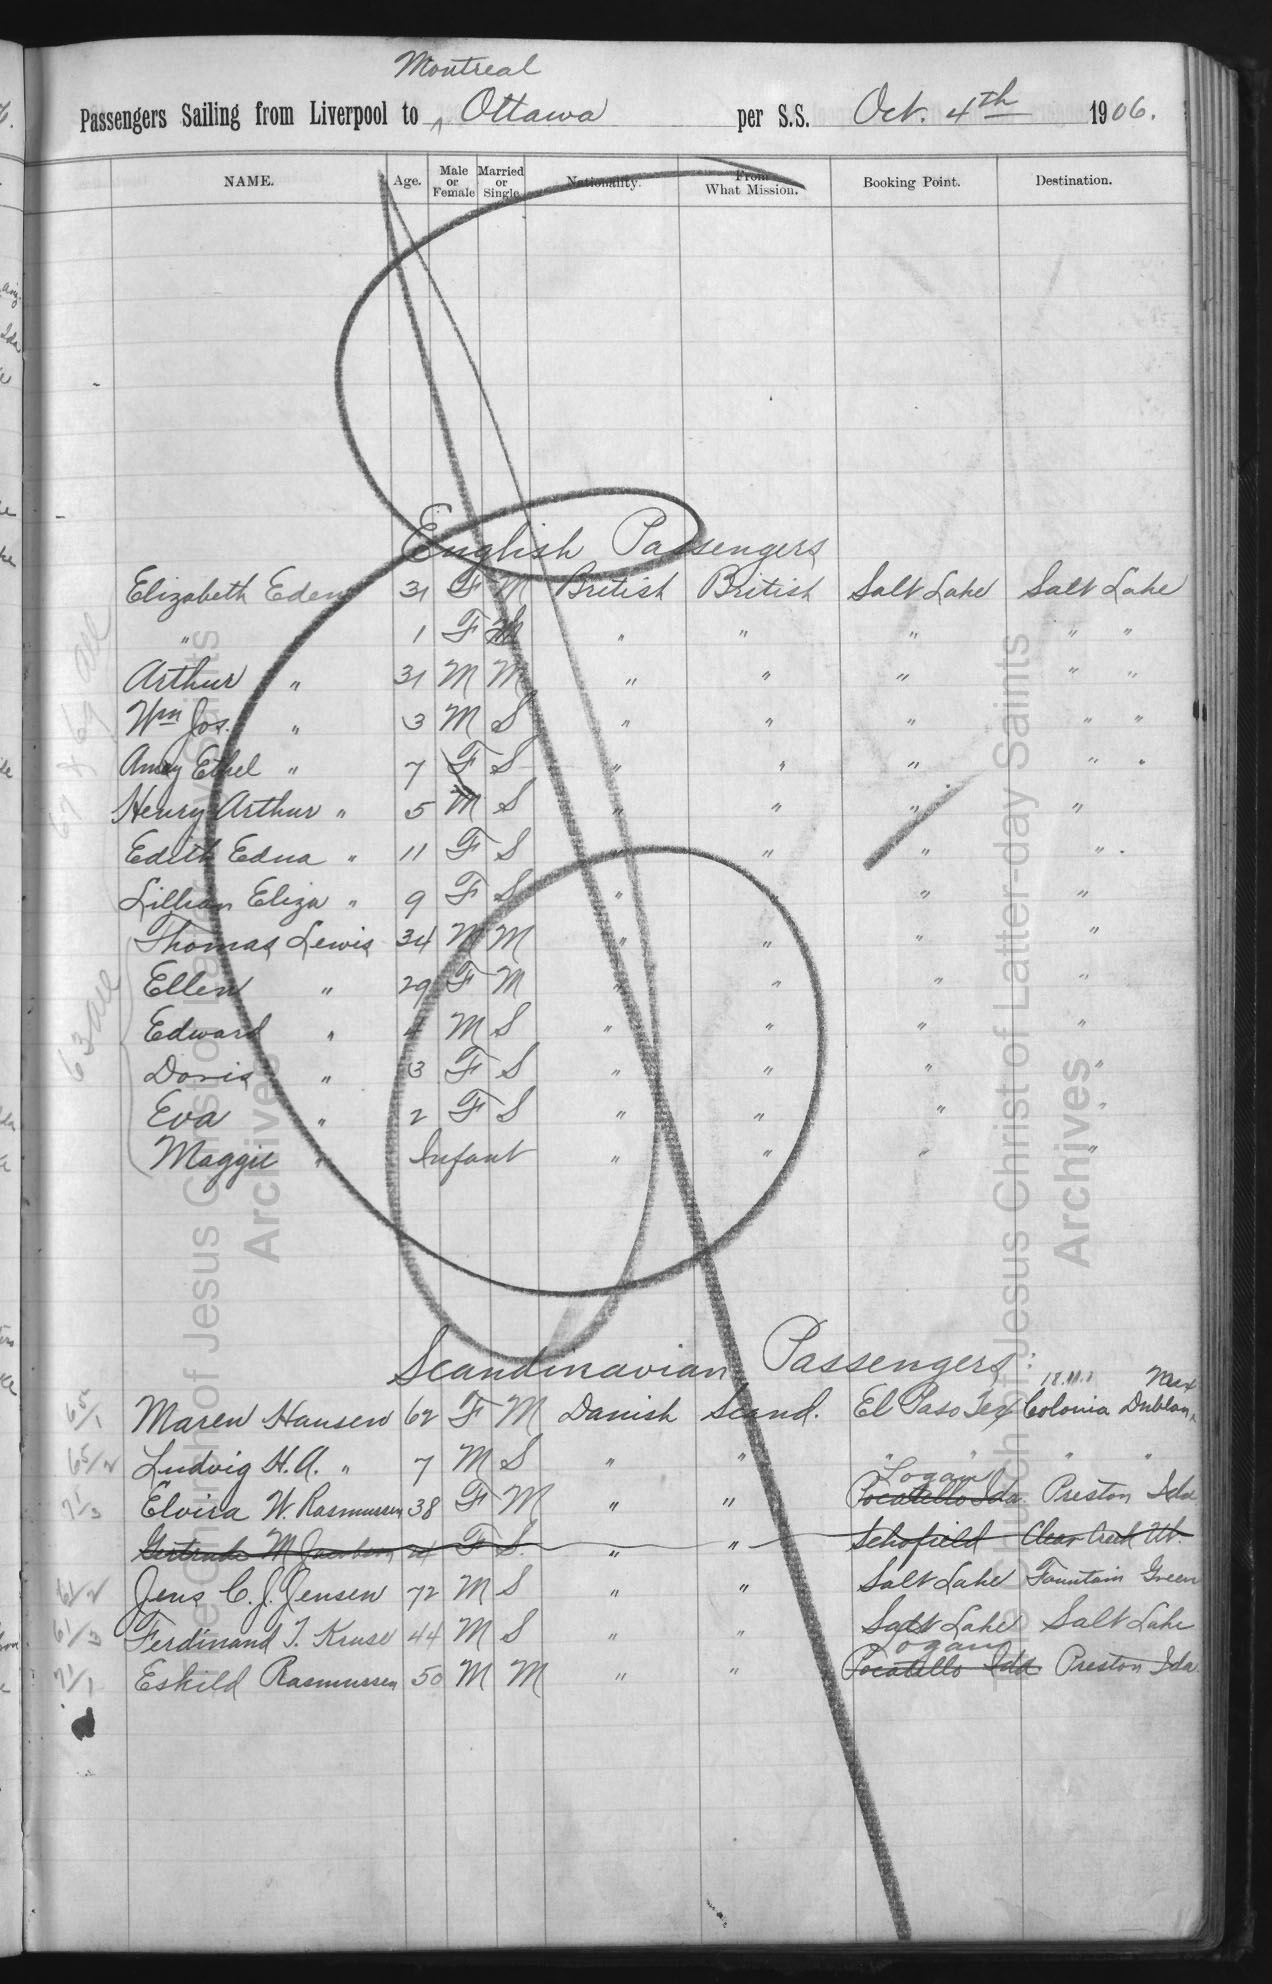 Montreal
Passengers Sailing from Liverpool to ^ Ottawa per S.S. Oct. 4th 1906.
NAME. Age. Male or Female Married or Single Nationality. From What Mission. Booking Point. Destination.
English Passengers
Elizabeth Eden 31 F M British British Salt Lake Salt Lake
" 1 F " " " " "
Arthur " 31 M M " " " " "
Wm Jos. " 3 M S " " " " "
Amey Ethel " 7 F S " " " " "
Henry Arthur " 5 M S " " " "
Edith Edna " 11 F S " " " "
Lillian Eliza " 9 F S " " " "
Thomas Lewis 34 M M " " " "
Ellen " 29 F M " " " "
Edward " 4 M S " " " "
Doris " 3 F S " " " "
Eva " 2 F S " " " "
Maggie " Infant " " " "
67 & 69 all
63 all
Scandinavian Passengers:
65/1 Maren Hansen 62 F M Danish Scand. El Paso Tex Colonia Dublan, Mex
65/2 Ludvig H.A. " 7 M S " " " " "
71/3 Elvira W. Rasmussen 38 F M " " Pocatello Ida. Logan Preston Ida
Gertrude M Jacobsen 21 F S. " " Schofield Clear Creek Ut.
61/2 Jens C. J. Jensen 72 M S " " Salt Lake Fountain Green
61/3 Ferdinand T. Kruse 44 M S " " Salt Lake Salt Lake
71/1 Eskild Rasmussen 50 M M " " Pocatello Ida Logan Preston Ida
The Church of Jesus Christ of Latter-day Saints
Archives
The Church of Jesus Christ of Latter-day Saints
Archives